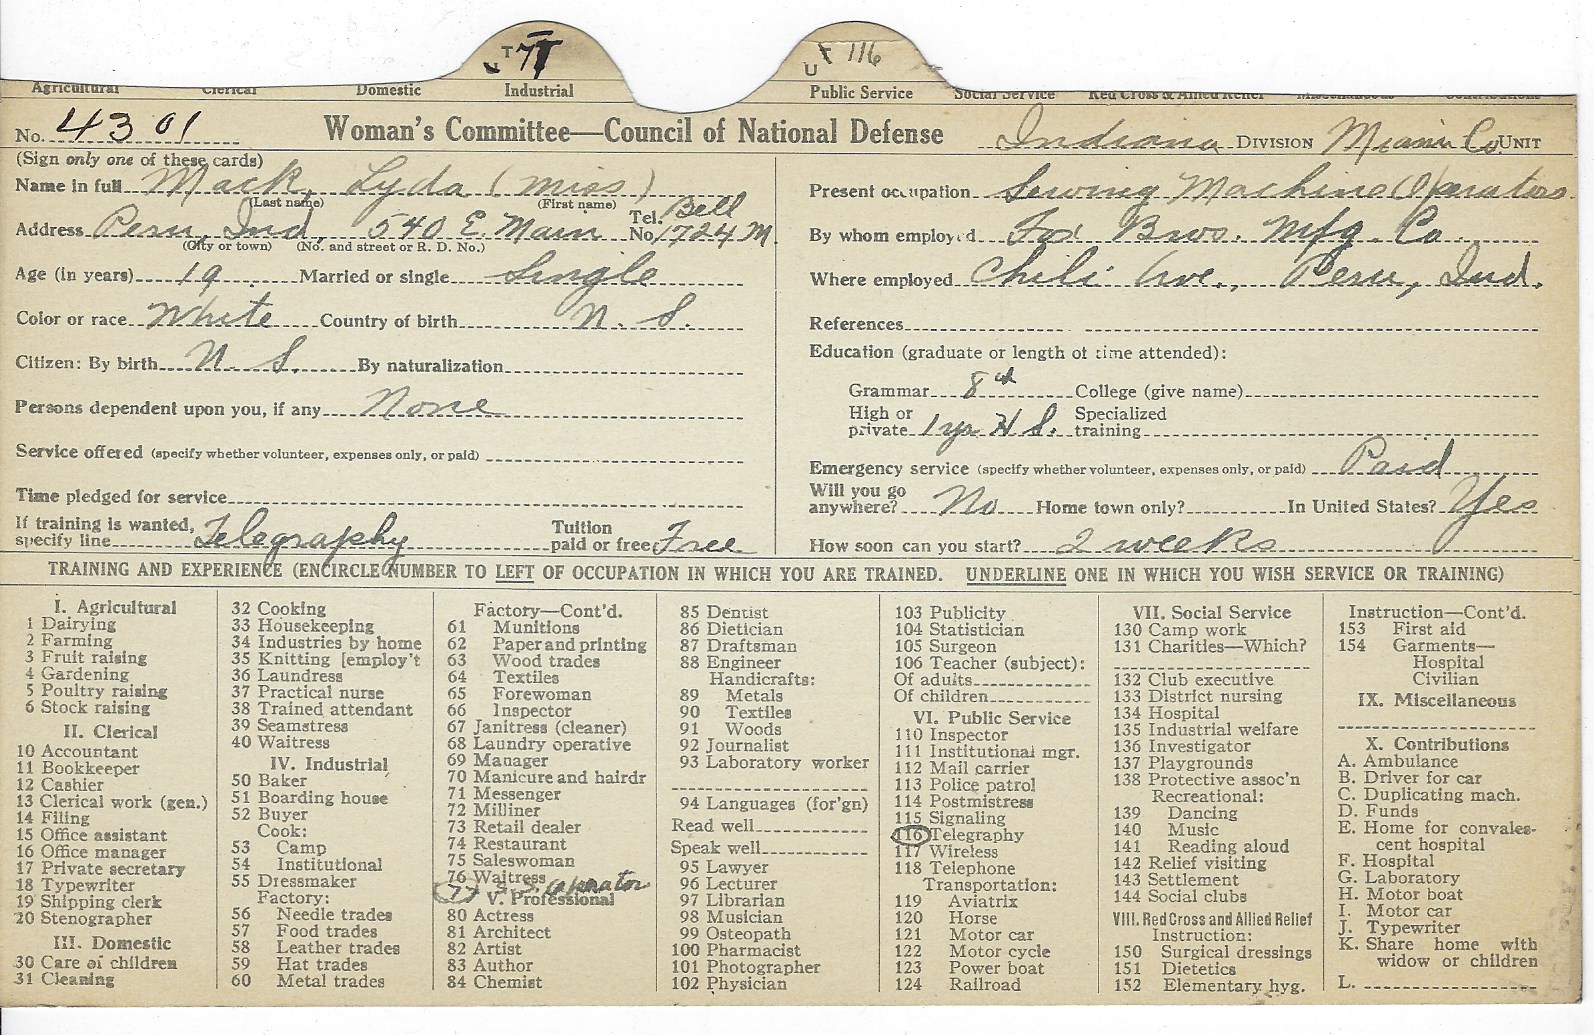 T 77
U T 116
Agricultural Clerical Domestic Industrial Public Service Social Service Red Cross & Allied Relief Miscellaneous Contributions
No. 4301 Woman's Committee—Council of National Defense Indiana DIVISION Miami Co. UNIT
(Sign only one of these cards)
Name in full Mack, Lyda (Miss)
(Last name) (First name)
Address Peru, Ind. 540 E. Main Tel. No. Bell 1724 M.
(City or town) (No. and street or R. D. No.)
Age (in years) 19 Married or single Single
Color or race White Country of birth U. S.
Citizen: By birth U. S. By naturalization
Persons dependent upon you, if any None
Service offered (specify whether volunteer, expenses only, or paid)
Time pledged for service
If training is wanted, specify line Telegraphy Tuition paid or free Free
Present occupation Sewing Machine Operator
By whom employed Fox Bros. Mfg. Co.
Where employed Chili Ave., Peru, Ind.
References
Education (graduate or length of time attended):
Grammar 8th College (give name)
High or private 1 yr H S. Specialized training
Emergency service (specify whether volunteer, expenses only, or paid) Paid
Will you go anywhere? No Home town only? In United States? Yes
How soon can you start? 2 weeks
TRAINING AND EXPERIENCE (ENCIRCLE NUMBER TO LEFT OF OCCUPATION IN WHICH YOU ARE TRAINED. UNDERLINE ONE IN WHICH YOU WISH SERVICE OR TRAINING)
I. Agricultural
1 Dairying
2 Farming
3 Fruit raising
4 Gardening
5 Poultry raising
6 Stock raising
II. Clerical
10 Accountant
11 Bookkeeper
12 Cashier
13 Clerical work (gen.)
14 Filing
15 Office assistant
16 Office manager
17 Private secretary
18 Typewriter
19 Shipping clerk
20 Stenographer
III. Domestic
30 Care of children
31 Cleaning
32 Cooking
33 Housekeeping
34 Industries by home
35 Knitting [employ't
36 Laundress
37 Practical nurse
38 Trained attendant
39 Seamstress
40 Waitress
IV. Industrial
50 Baker
51 Boarding house
52 Buyer
Cook:
53 Camp
54 Institutional
55 Dressmaker
Factory:
56 Needle trades
57 Food trades
58 Leather trades
59 Hat trades
60 Metal trades
Factory—Cont'd.
61 Munitions
62 Paper and printing
63 Wood trades
64 Textiles
65 Forewoman
66 Inspector
67 Janitress (cleaner)
68 Laundry operative
69 Manager
70 Manicure and hairdr
71 Messenger
72 Milliner
73 Retail dealer
74 Restaurant
75 Saleswoman
76 Waitress
77 operator
V. Professional
80 Actress
81 Architect
82 Artist
83 Author
84 Chemist
85 Dentist
86 Dietician
87 Draftsman
88 Engineer
Handicrafts:
89 Metals
90 Textiles
91 Woods
92 Journalist
93 Laboratory worker
94 Languages (for'gn)
Read well
Speak well
95 Lawyer
96 Lecturer
97 Librarian
98 Musician
99 Osteopath
100 Pharmacist
101 Photographer
102 Physician
103 Publicity
104 Statistician
105 Surgeon
106 Teacher (subject):
Of adults
Of children
VI. Public Service
110 Inspector
111 Institutional mgr.
112 Mail carrier
113 Police patrol
114 Postmistress
115 Signaling
116 Telegraphy
117 Wireless
118 Telephone
Transportation:
119 Aviatrix
120 Horse
121 Motor car
122 Motor cycle
123 Power boat
124 Railroad
VII. Social Service
130 Camp work
131 Charities—Which?
132 Club executive
133 District nursing
134 Hospital
135 Industrial welfare
136 Investigator
137 Playgrounds
138 Protective assoc'n
Recreational:
139 Dancing
140 Music
141 Reading aloud
142 Relief visiting
143 Settlement
144 Social clubs
VIII. Red Cross and Allied Relief
Instruction:
150 Surgical dressings
151 Dietetics
152 Elementary hyg.
Instruction—Cont'd.
153 First aid
154 Garments—
Hospital
Civilian
IX. Miscellaneous
X. Contributions
A. Ambulance
B. Driver for car
C. Duplicating mach.
D. Funds
E. Home for convales-
cent hospital
F. Hospital
G. Laboratory
H. Motor boat
I. Motor car
J. Typewriter
K. Share home with
widow or children
L.